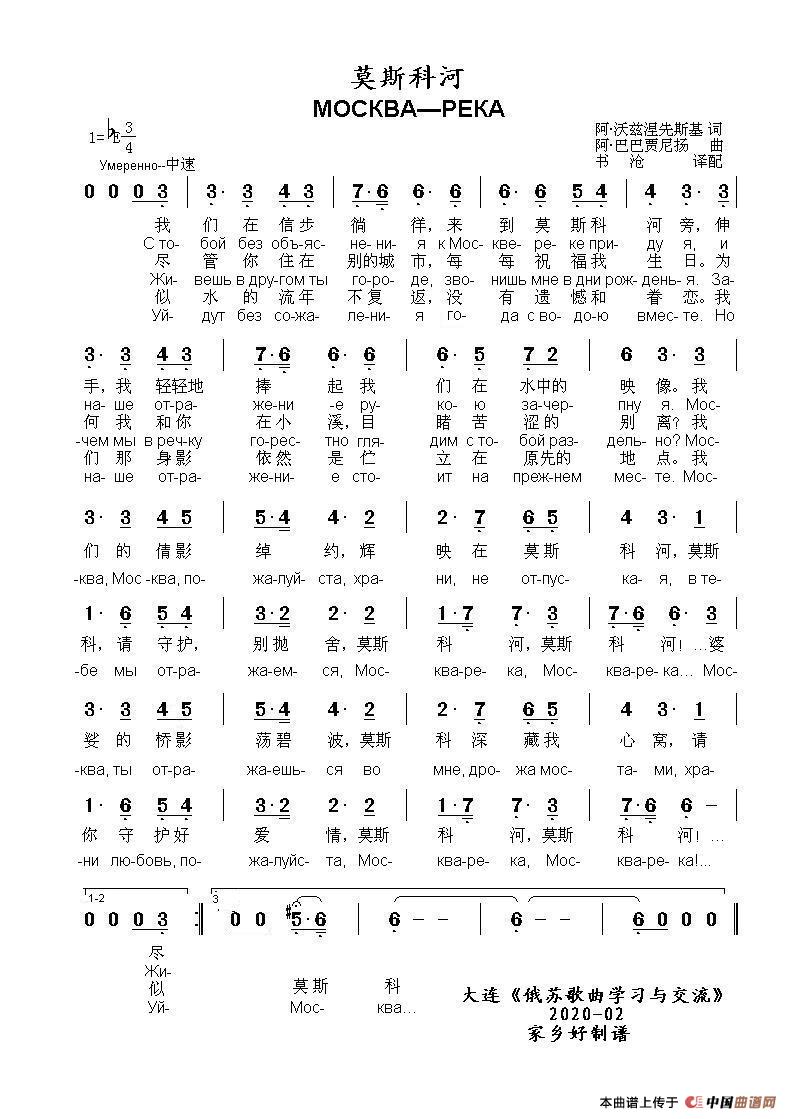 莫斯科河
МОСКВА—РЕКА
1=♭E 3/4
阿·沃兹涅先斯基 词
阿·巴巴贾尼扬 曲
书 沧 译配
Умеренно--中速
0 0 0 3 | 3· 3 4 3 | 7·6 6· 6 | 6· 6 5 4 | 4 3· 3
我 们 在 信 步 徜 徉，来 到 莫 斯 科 河 旁，伸
С то- бой без объ-яс- не- ни- я к Мос- кве- ре- ке при- ду я, и
尽 管 你 住 在 别的城 市，每 每 祝 福 我 生 日。为
Жи- вешь в дру-гом ты го-ро- де, зво- нишь мне в дни рож- день-я. За-
似 水 的 流 年 不 复 返，没 有 遗 憾 和 眷 恋。我
Уй- дут без со-жа- ле-ни- я го- да с во- до-ю вмес-те. Но
3· 3 4 3 | 7·6 6· 6 | 6· 5 7 2 | 6 3· 3
手，我 轻轻地 捧 起 我 们 在 水中的 映 像。我
на- ше от-ра- же-ни -е ру- ко- ю за-чер- пну я. Мос-
何 我 和 你 在 小 溪，目 睹 苦 涩 的 别 离？我
-чем мы в реч-ку го-рес- тно гля- дим с то- бой раз- дель-но? Мос-
们 那 身 影 依 然 是 伫 立 在 原先的 地 点。我
на- ше от-ра- же-ни- е сто- ит на преж-нем мес- те. Мос-
3· 3 4 5 | 5·4 4· 2 | 2· 7 6 5 | 4 3· 1
们 的 倩 影 绰 约，辉 映 在 莫 斯 科 河，莫斯
-ква, Мос -ква, по- жа-луй- ста, хра- ни, не от-пус- ка- я, в те-
1· 6 5 4 | 3·2 2· 3 | 1·7 7· 3 | 7·6 6· 3
科，请 守 护， 别 抛 舍，莫斯 科 河，莫斯 科 河！…婆
-бе мы от-ра- жа-ем- ся, Мос- ква-ре- ка, Мос- ква-ре-ка... Мос-
3· 3 4 5 | 5·4 4· 2 | 2· 7 6 5 | 4 3· 1
娑 的 桥 影 荡 碧 波，莫斯 科 深 藏 我 心 窝，请
-ква, ты от-ра- жа-ешь- ся во мне, дро- жа мос- та- ми, хра-
1· 6 5 4 | 3·2 2· 3 | 1·7 7· 3 | 7·6 6 –
你 守 护 好 爱 情，莫斯 科 河，莫斯 科 河！…
-ни лю-бовь, по- жалуйс- та, Мос- ква-ре- ка, Мос- ква-река!...
1-2 3
0 0 0 3 :‖ 0 0 #5·6 | 6 – – | 6 – – | 6 0 0 0 ‖
尽
Жи-
似 莫 斯 科
Уй- Мос- ква...
大连《俄苏歌曲学习与交流》
2020-02
家乡好制谱
本曲谱上传于 中国曲谱网